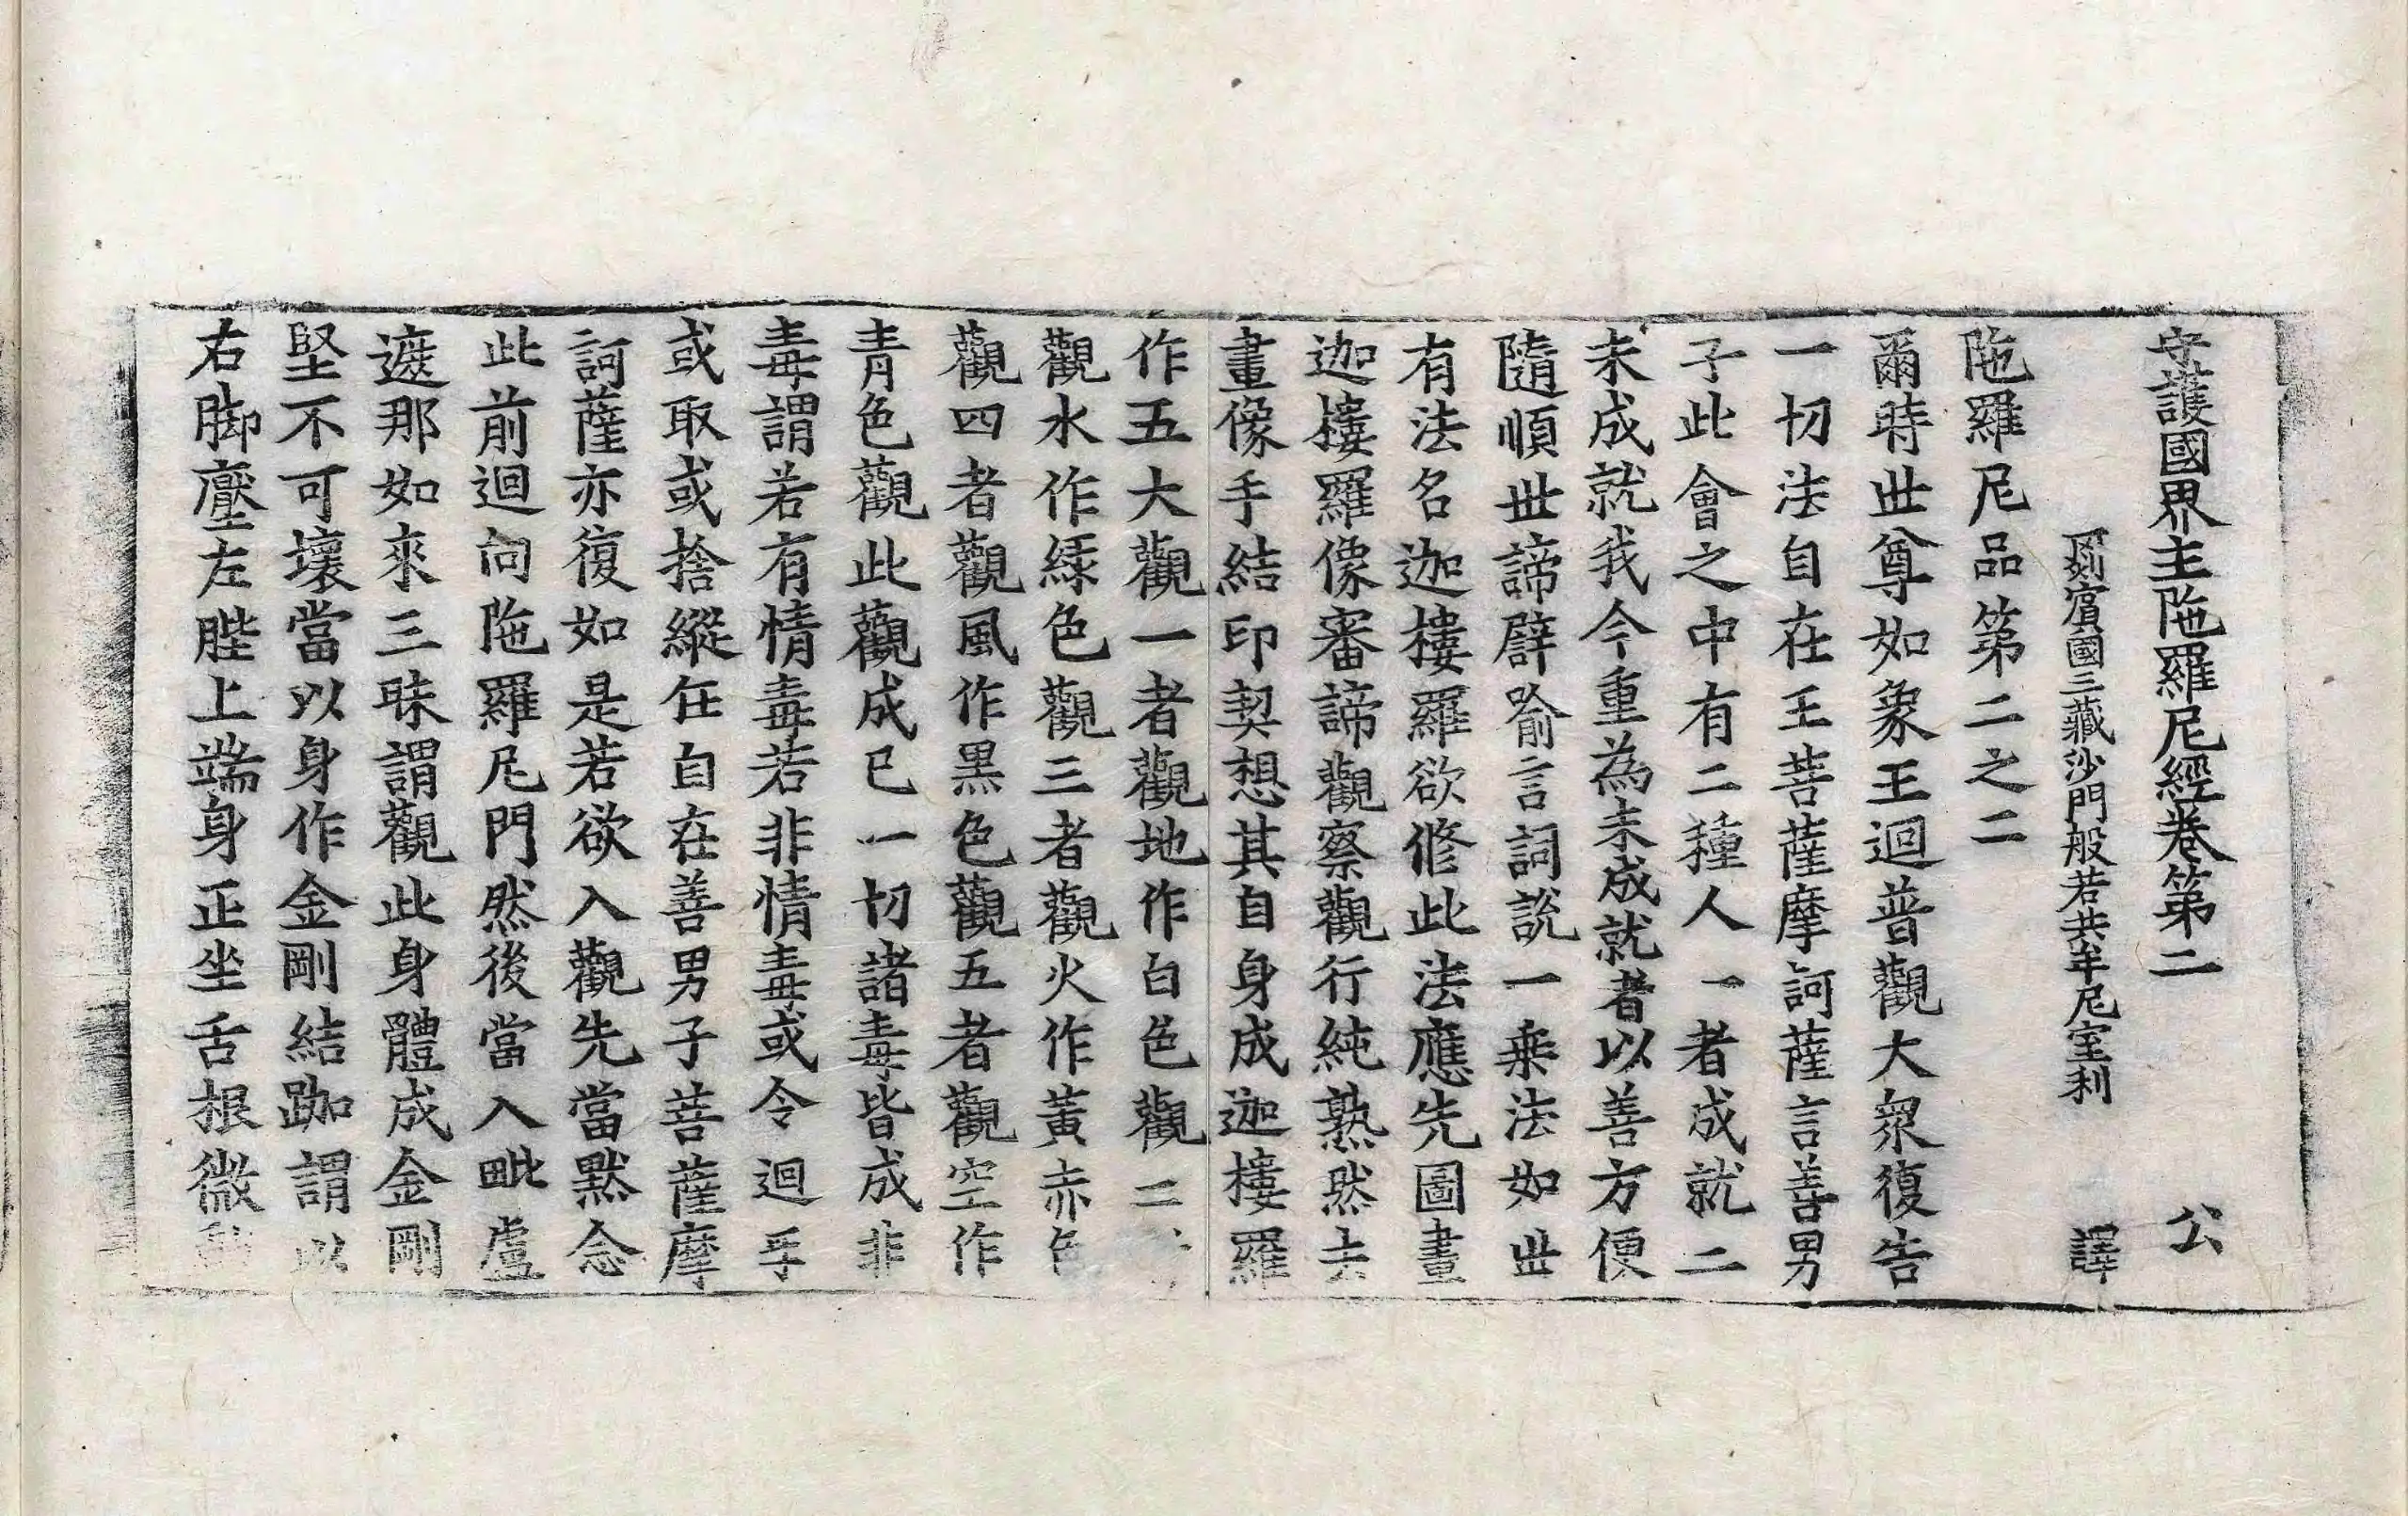 守護國界主陁羅尼經卷第二 公
罽賓國三藏沙門般若共牟尼室利 譯
陁羅尼品第二之二
爾時世尊如象王迴普觀大衆復告
一切法自在王菩薩摩訶薩言善男
子此會之中有二種人一者成就二
未成就我今重為未成就者以善方便
隨順世諦譬喻言詞說一乗法如世
有法名迦樓羅欲修此法應先圖畫
迦樓羅像審諦觀察觀行純熟然去
畫像手結印契想其自身成迦樓羅
作五大觀一者觀地作白色觀二
觀水作緑色觀三者觀火作黃赤色
觀四者觀風作黑色觀五者觀空作
青色觀此觀成已一切諸毒皆成非
毒謂若有情毒若非情毒或令迴乎
或取或捨縱任自在善男子菩薩摩
訶薩亦復如是若欲入觀先當默念
此前迴向陁羅尼門然後當入毗盧
遮那如來三昧謂觀此身體成金剛
堅不可壞當以身作金剛結跏謂以
右脚壓左䏶上端身正坐舌根微